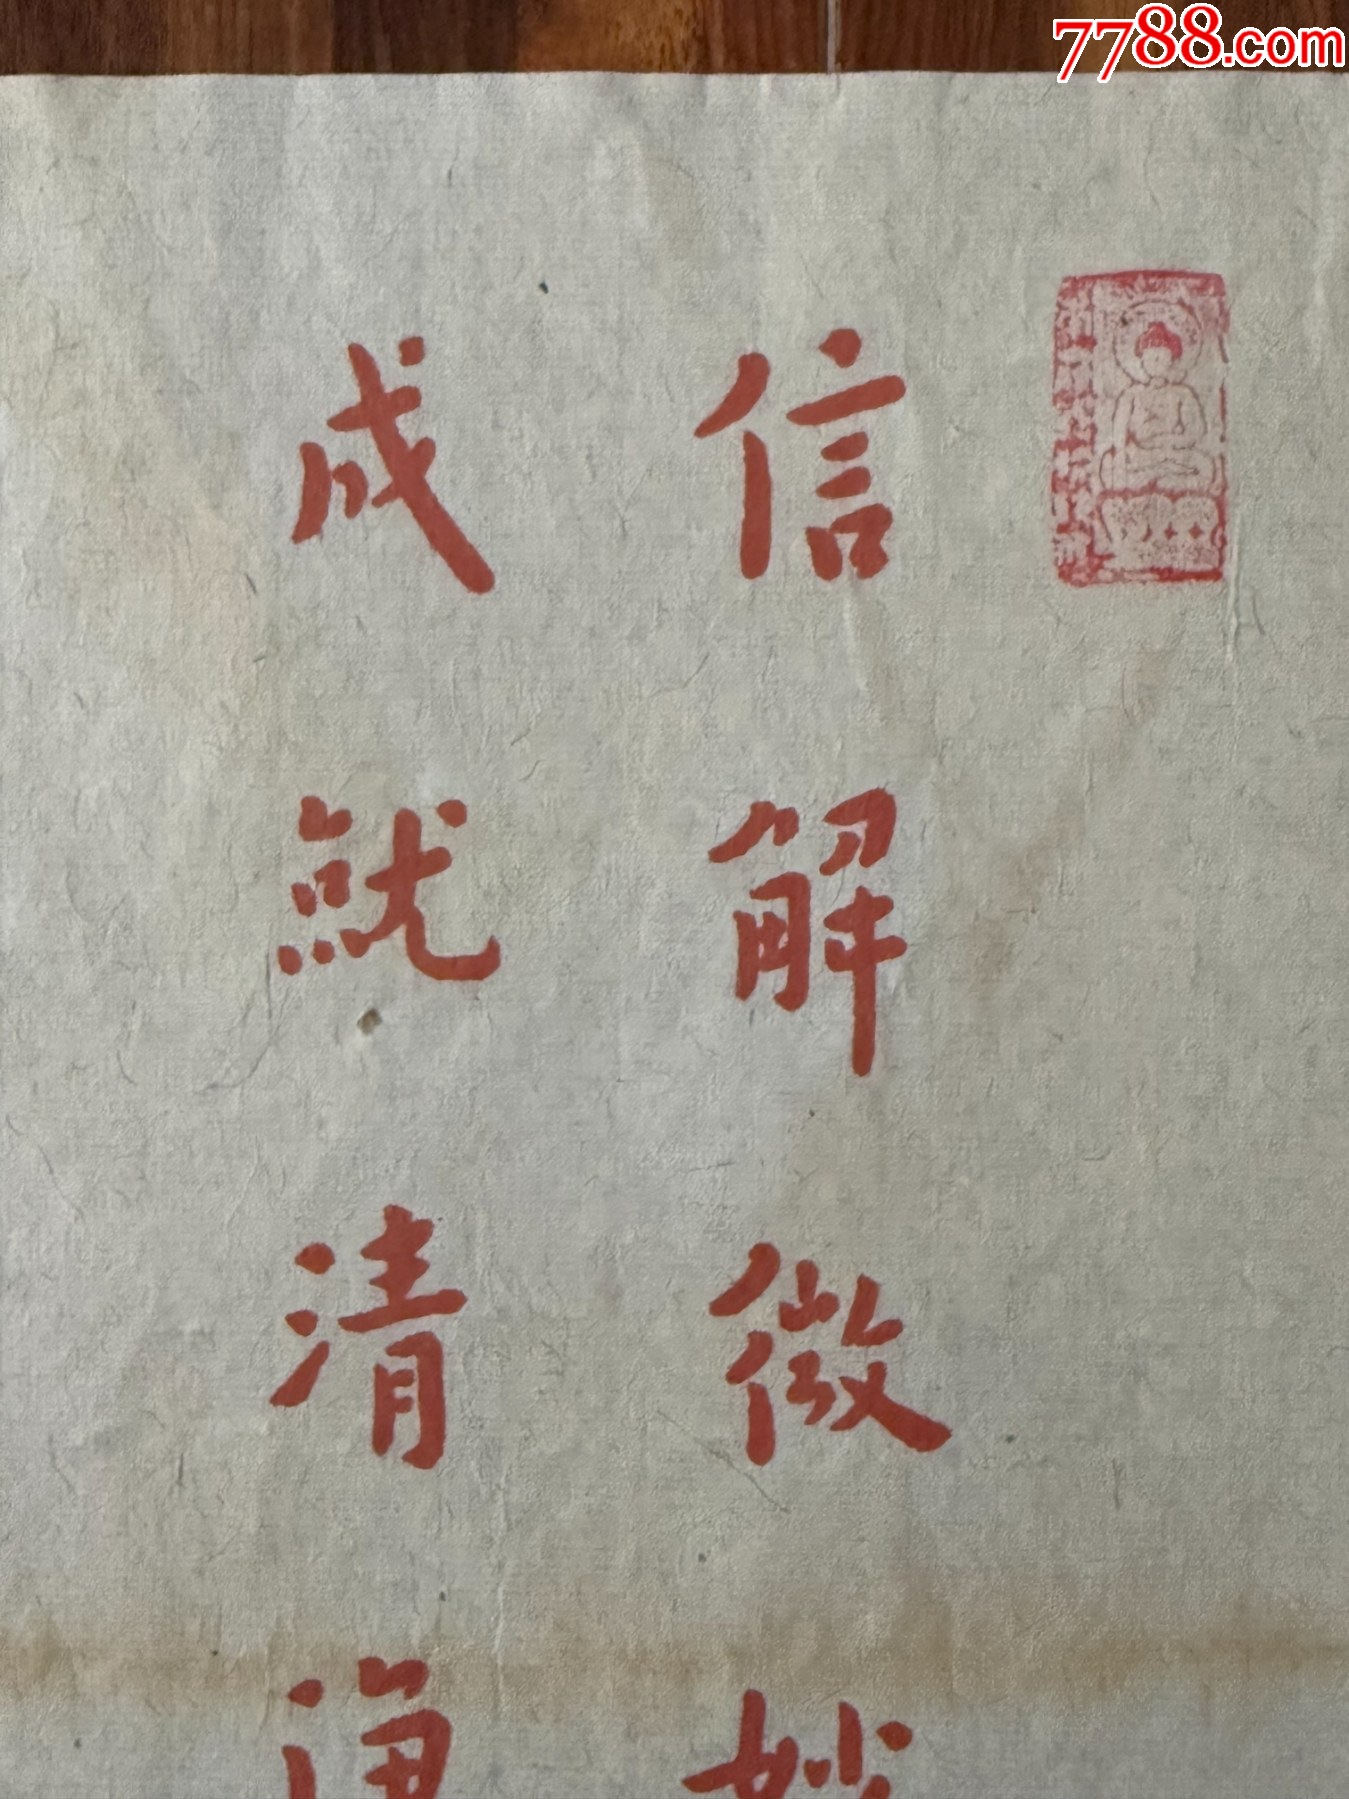 7788.com
信解微妙
成就清淨